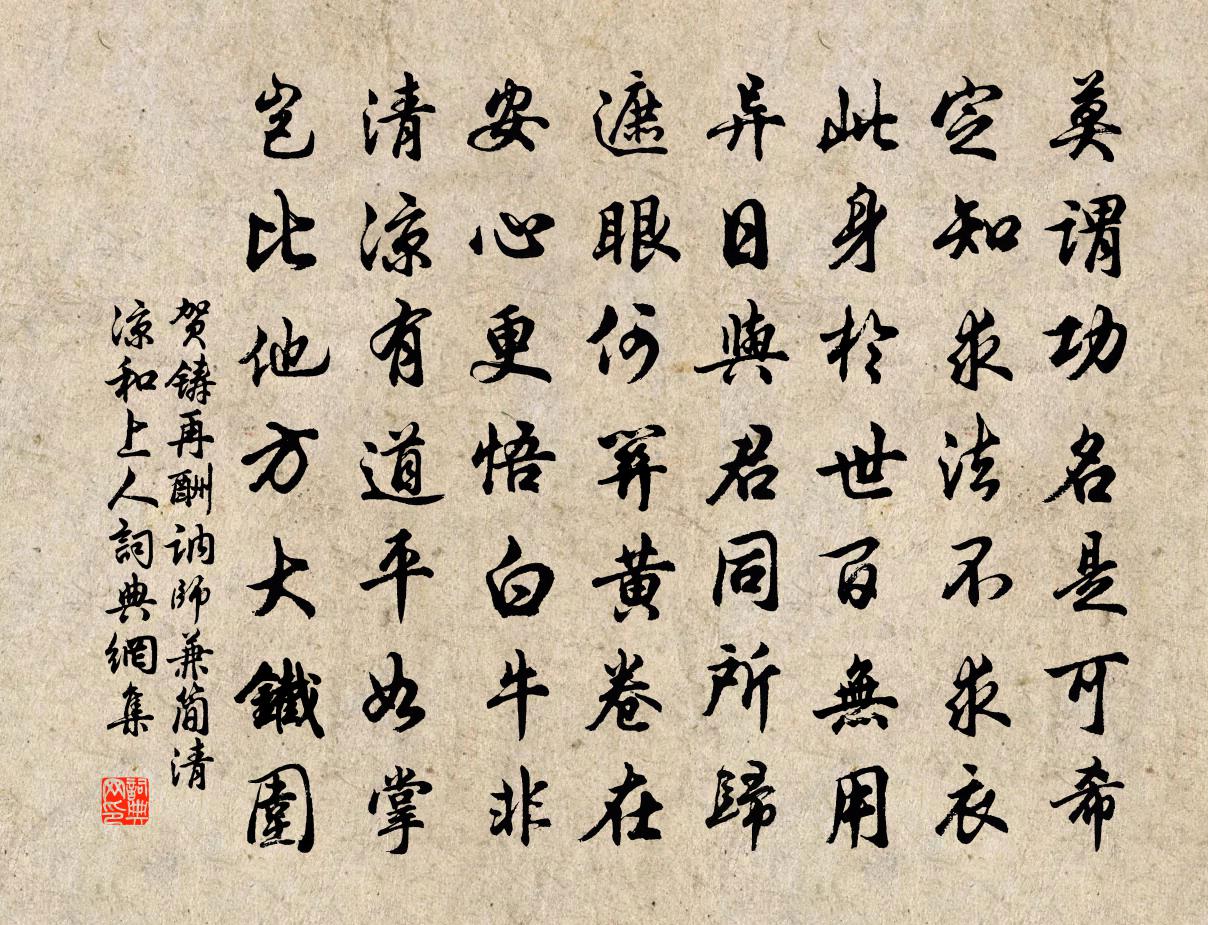 莫謂功名是可希
定知求法不求衣
此身於世百無用
异日與君同所歸
遮眼何算黄卷在
安心更悟白牛非
清凉有道平如掌
岂比他方大鐵圍
贺鑄再酬讷師兼簡清
凉和上人詞典網集
詞典
网印